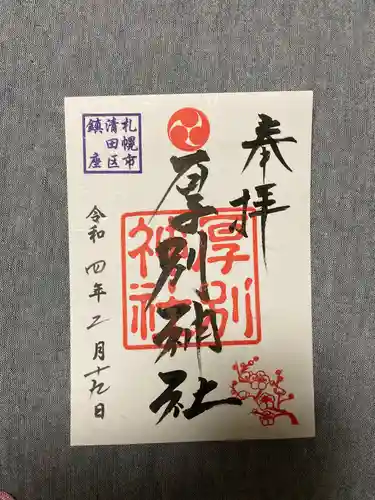 奉拝
厚別神社
厚別
神社
札幌市
清田区
鎮座
令和四年二月十九日